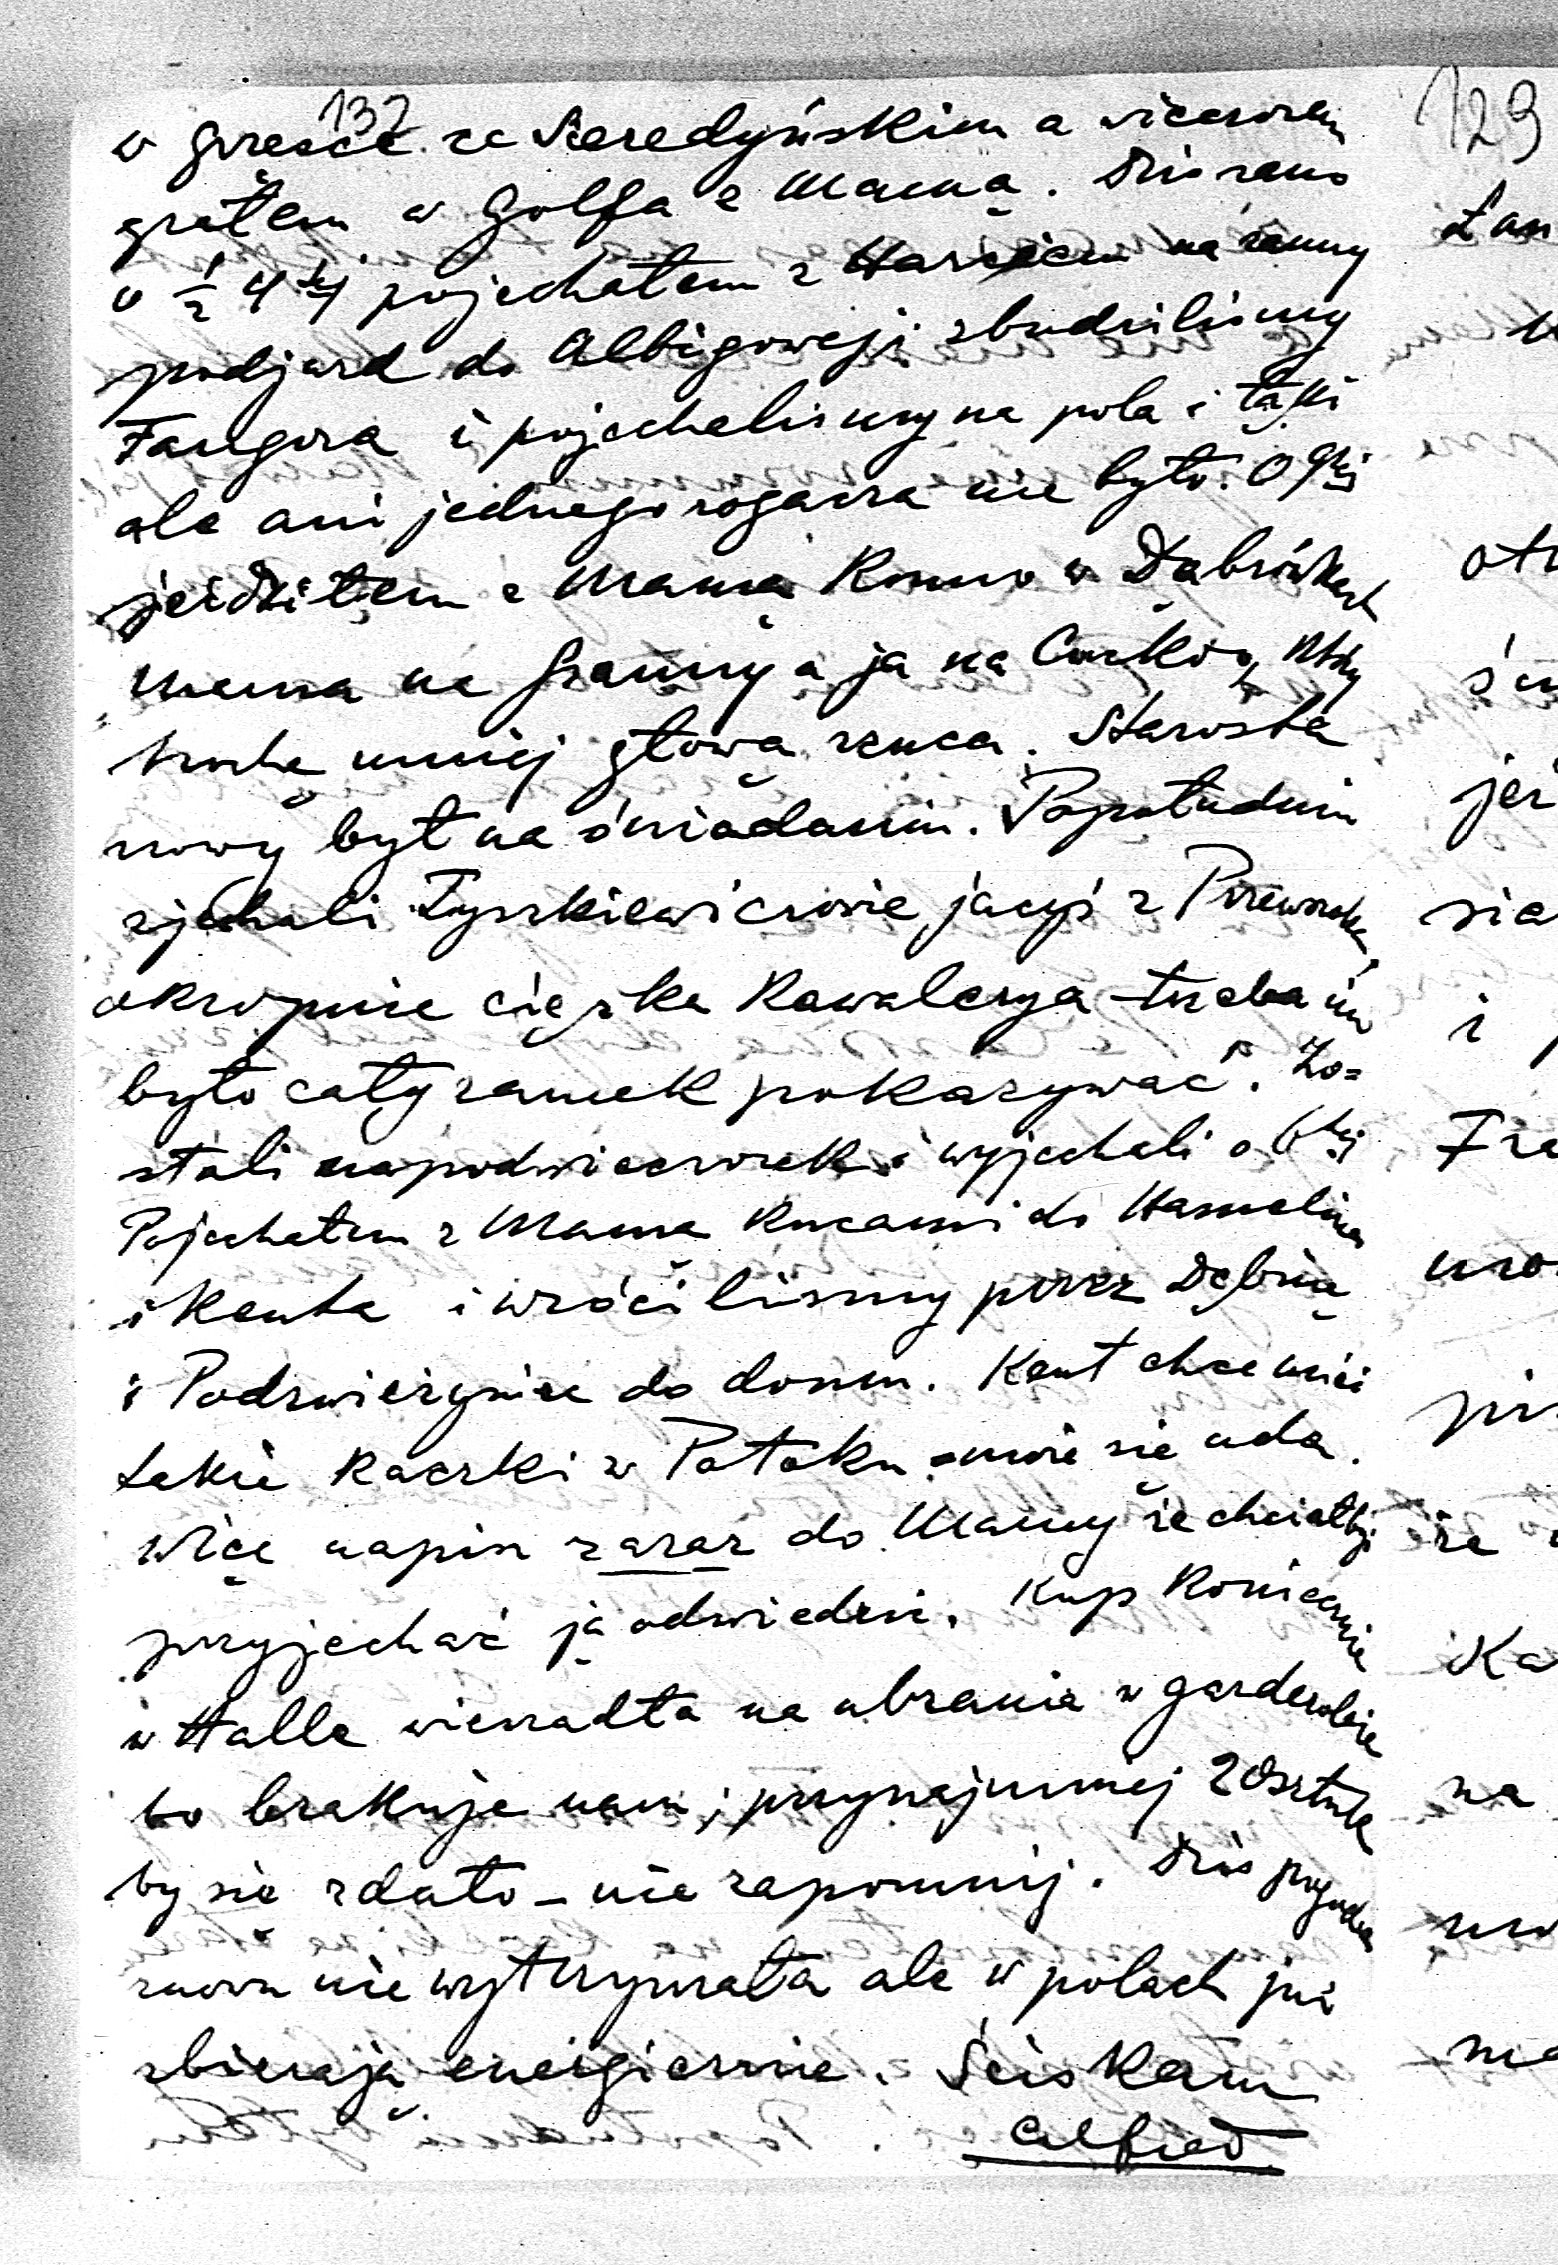 132
w Gresce ze Seredyńskim a wieczorem
grałem w Golfa z Mamą. Dziś rano
o ½ 4tej pojechałem z na ranny
podjazd do Albigowej, zbudziliśmy
Fangora i pojechaliśmy na pola i łąki
ale ani jednego rogacza nie było. O 9tej
jeździłem z Mamą konno w Dąbrówkach
Mama na Granny a ja na który
trochę mniej głową rzuca. Starosta
nowy był na śniadaniu. Popołudniu
zjechali Tyszkiewiczowie jacyś z Przeworska,
okropnie ciężka kawalerya - trzeba im
było cały zamek pokazywać. Zo=
stali na podwieczorek i wyjechali o 6tej
Pojechałem z Mamą kucami do Hamelina
i Kenta i wróciliśmy przez Dębinę
i Podzwierzyniec do domu. Kent chce mieć
takie kaczki w Potoku - może się uda.
Więc napisz zaraz do Mamy że chciałbyś
przyjechać ją odwiedzić. Kup koniecznie
w Halle wieszadła na ubrania w garderobie
bo brakuje nam; przynajmniej 20 sztuk
by się zdało - nie zapomnij. Dziś pogoda
znowu nie wytrzymała ale w polach już
zbierają energicznie. Ściskam
Alfred
129